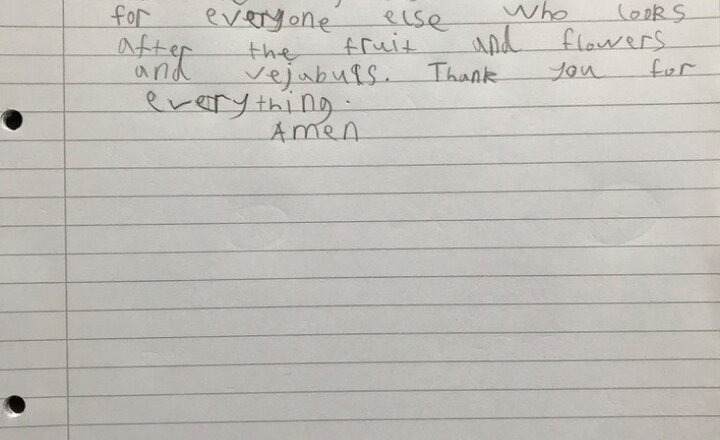 for everyone else who looks
after the fruit and flowers
and vejabuls. Thank you for
everything.
Amen